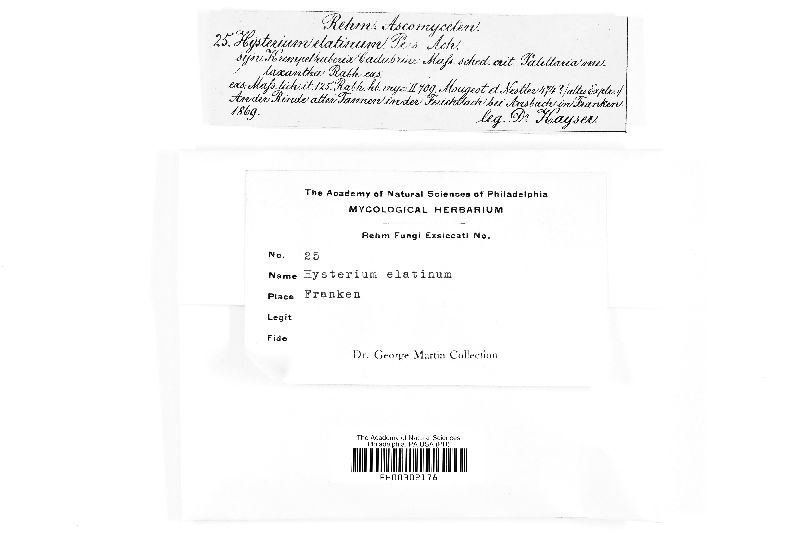 Rehm: Ascomyceten.
25. Hysterium elatinum Pers. Ach.
syn. Krempelhuberia Cadubriae Mass. sched. crit. Patellaria mi-
laxantha Rabh. exs.
exs. Mass. lich. it. 125. Rabh. hb. myc. II 709. Mougeot et Nestler 474
An der Rinde alter Tannen in der Feuchtlach bei Ansbach in Franken
1869.
leg. Dr Kayser
The Academy of Natural Sciences of Philadelphia
MYCOLOGICAL HERBARIUM
Rehm Fungi Exsiccati No.
No. 25
Name Hysterium elatinum
Place Franken
Legit
Fide
Dr. George Martin Collection
The Academy of Natural Sciences
Philadelphia, PA USA (PH)
PH00302176